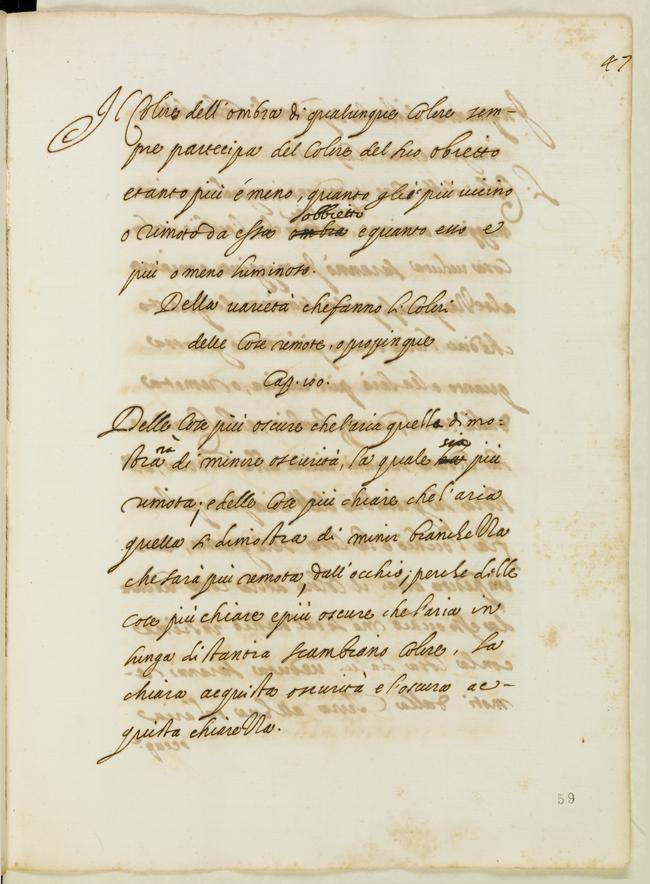 47
Il Colore dell'ombra di qualunque Colore sem-
pre partecipa del Colore del suo obietto
e tanto più é meno, quanto gli é più uicino
obbietto
o rimoto da essa ombra e quanto esso e
più o meno luminoso.
Della uarietà che fanno li Colori
delle Cose rimote, o propinque
Cap. 100.
Delle Cose più oscure che l'aria quella dimo-
strarà di minore oscurità, la quale sia più
rimota; e delle Cose più chiare che l'aria
quella si dimostra di minor bianchezza
che sarà più remota, dall'occhio; perche delle
cose più chiare e più oscure che l'aria in
lunga distantia scambiano Colore, la
chiara acquista oscurità e l'oscura ac-
quista chiarezza.
59